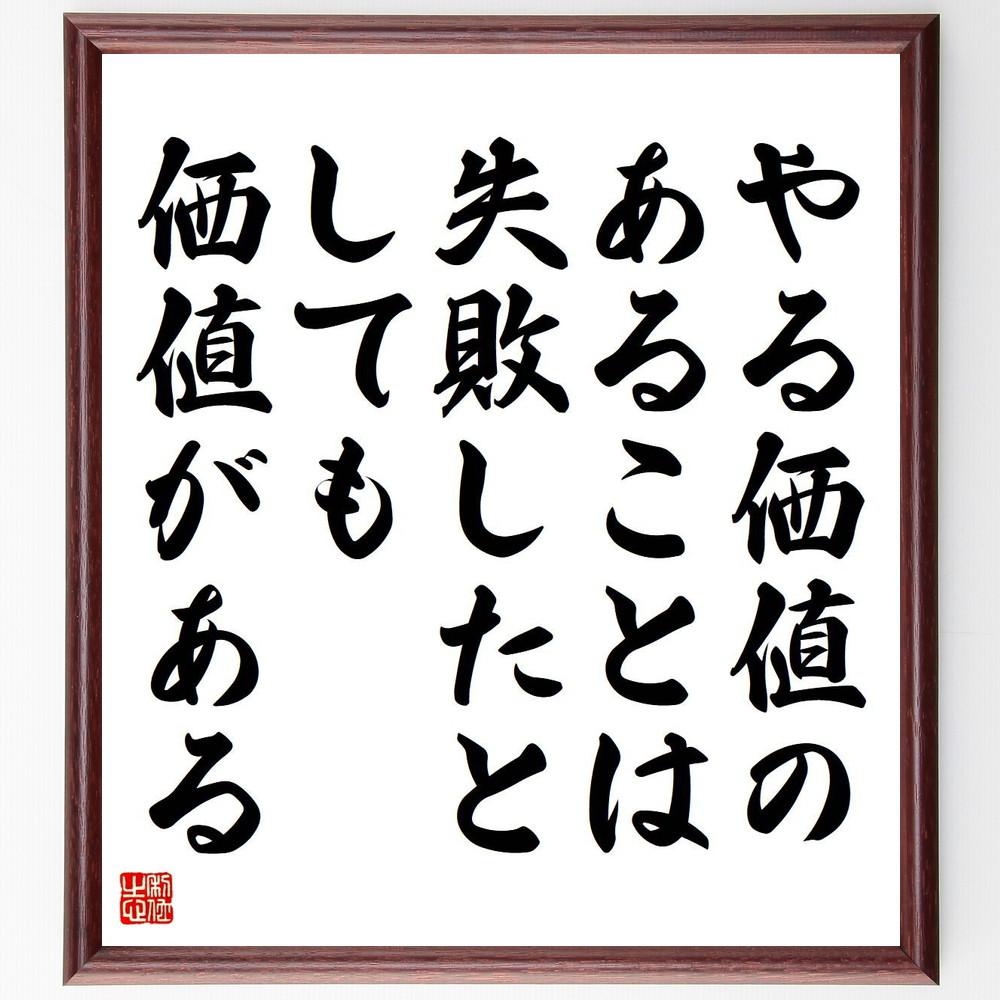 やる価値の
あることは
失敗したと
しても
価値がある